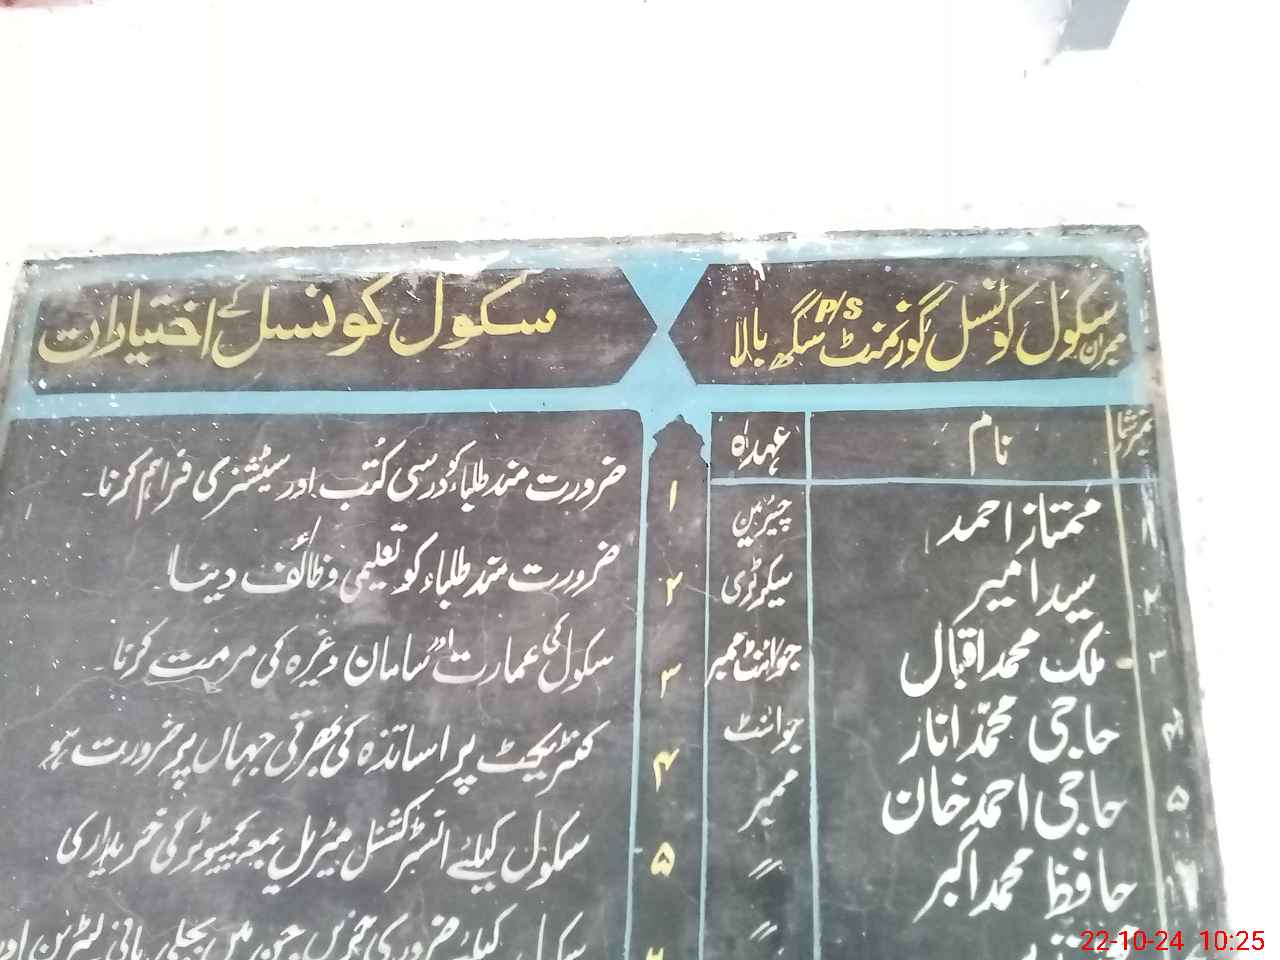 ممبران سکول کونسل گورنمنٹ P/S سگھ بالا
نمبر شمار نام عہدہ
۱ ممتاز احمد چیئرمین
۲ سید امیر سیکرٹری
۳ ملک محمد اقبال جوائنٹ ممبر
۴ حاجی محمد انار جوائنٹ
۵ حاجی احمد خان ممبر
۶ حافظ محمد اکبر 〃
〃
سکول کونسل کے اختیارات
۱ ضرورت مند طلباء کو درسی کُتب اور سٹیشنری فراہم کرنا۔
۲ ضرورت مند طلباء کو تعلیمی وظائف دینا
۳ سکول کی عمارت اور سامان وغیرہ کی مرمت کرنا۔
۴ کنٹریکٹ پر اساتذہ کی بھرتی جہاں پر ضرورت ہو
۵ سکول کیلئے انسٹرکشنل میٹریل بمعہ کمپیوٹر کی خریداری
۶ سکول کیلئے ضروری چیزیں جن میں بجلی پانی لیٹرین اور
22-10-24 10:25